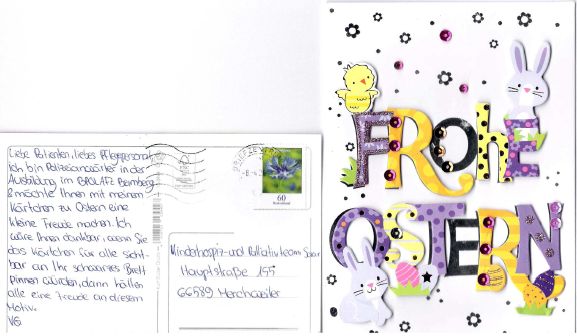 Liebe Patienten, liebes Pflegepersonal,
Ich bin Polizeianwärter in der
Ausbildung im BPOLAFZ Bamberg
& möchte Ihnen mit meinem
Kärtchen zu Ostern eine
kleine Freude machen. Ich
wäre Ihnen dankbar, wenn Sie
das Kärtchen für alle sicht-
bar an Ihr schwarzes Brett
pinnen würden, dann hätten
alle eine Freude an diesem
Motiv.
VG
BRIEFZE
60
Deutschland
Kinderhospiz- und Palliativteam Saar
Hauptstraße 155
66589 Merchweiler
FROHE
OSTERN